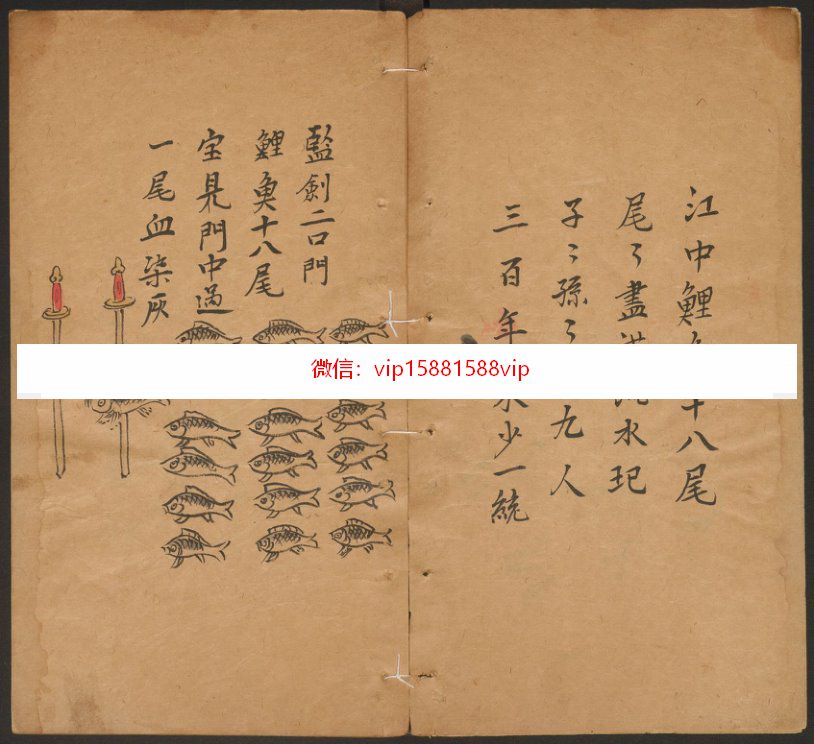 江中鯉十八尾
尾〻盡水玘
子〻孫〻九人
三百年少一統
監劍二口門
鯉魚十八尾
宝見門中過
一尾血染灰
微信：vip15881588vip